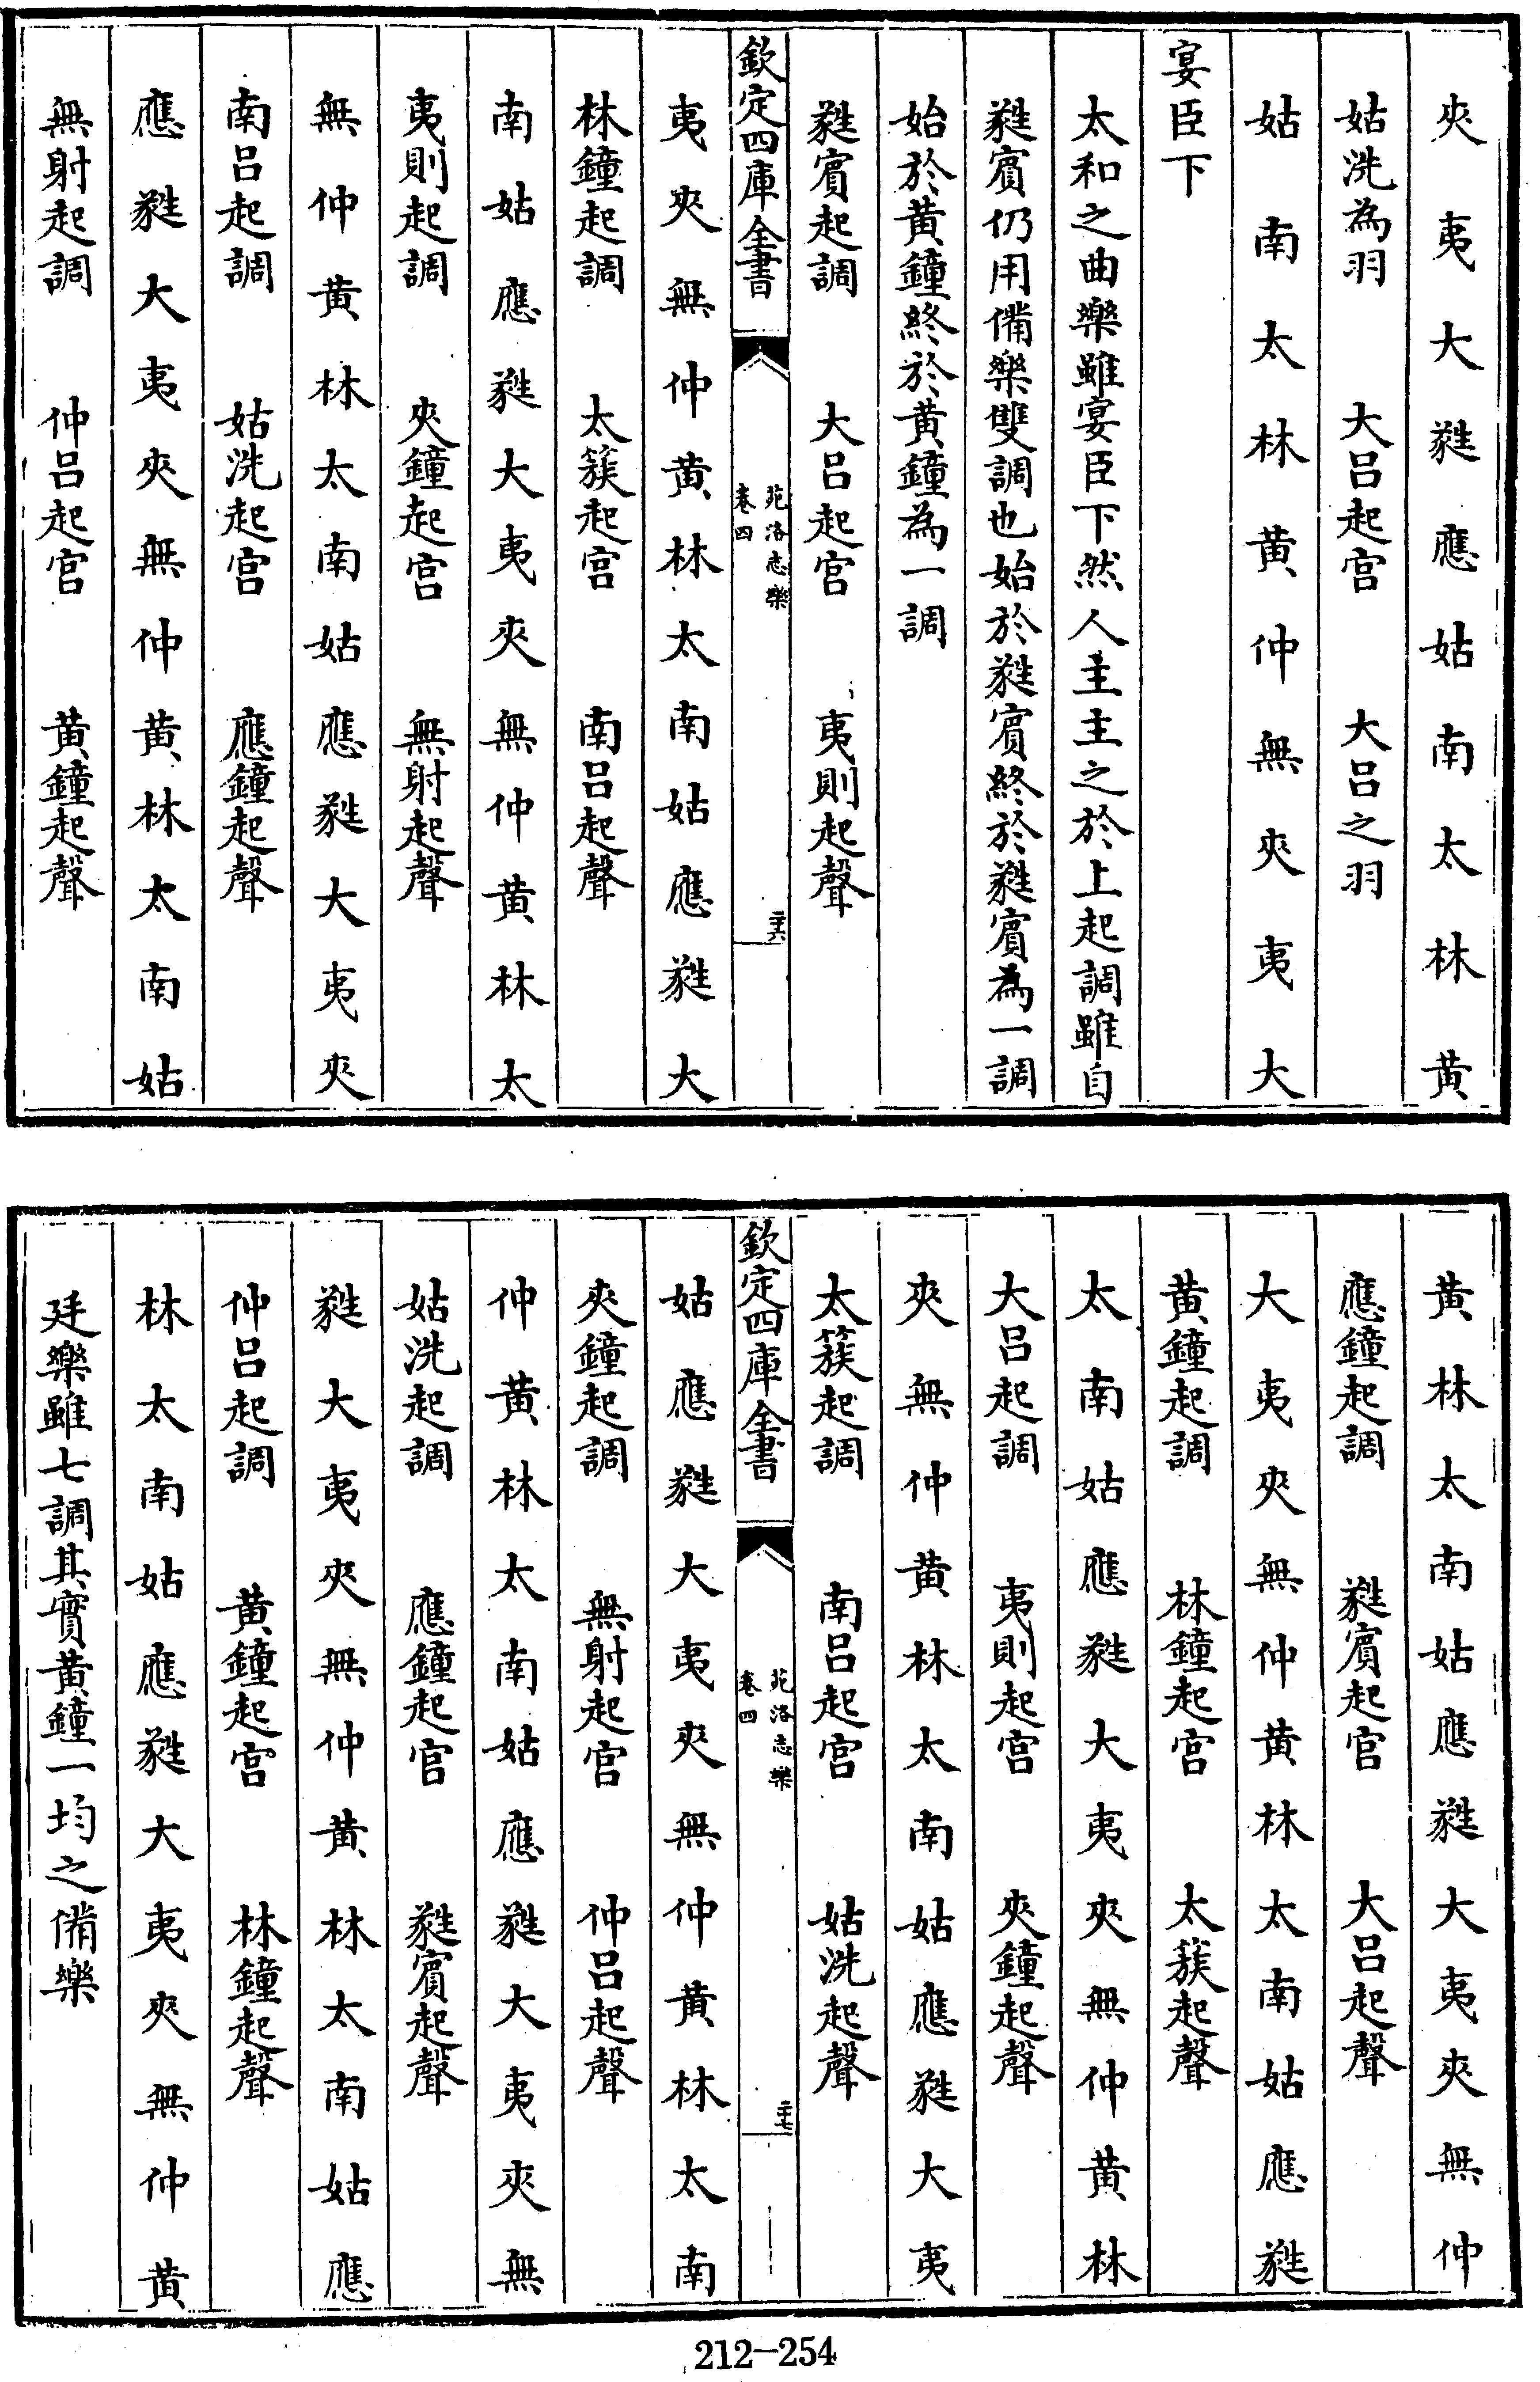 夾夷大蕤應姑南太林黃
姑洗為羽　大呂起宮　大呂之羽
姑南太林黃仲無夾夷大
宴臣下
太和之曲樂雖宴臣下然人主主之於上起調雖自
蕤賓仍用備樂雙調也始於蕤賓終於蕤賓為一調
始於黃鐘終於黃鐘為一調
蕤賓起調　大呂起宮　夷則起聲
欽定四庫全書
苑洛志樂
卷四
二十六
夷夾無仲黃林太南姑應蕤大
林鐘起調　太簇起宮　南呂起聲
南姑應蕤大夷夾無仲黃林太
夷則起調　夾鐘起宮　無射起聲
無仲黃林太南姑應蕤大夷夾
南呂起調　姑洗起宮　應鐘起聲
應蕤大夷夾無仲黃林太南姑
無射起調　仲呂起宮　黃鐘起聲
黃林太南姑應蕤大夷夾無仲
應鐘起調　蕤賓起宮　大呂起聲
大夷夾無仲黃林太南姑應蕤
黃鐘起調　林鐘起宮　太簇起聲
太南姑應蕤大夷夾無仲黃林
大呂起調　夷則起宮　夾鐘起聲
夾無仲黃林太南姑應蕤大夷
太簇起調　南呂起宮　姑洗起聲
欽定四庫全書
苑洛志樂
卷四
二十七
姑應蕤大夷夾無仲黃林太南
夾鐘起調　無射起宮　仲呂起聲
仲黃林太南姑應蕤大夷夾無
姑洗起調　應鐘起宮　蕤賓起聲
蕤大夷夾無仲黃林太南姑應
仲呂起調　黃鐘起宮　林鐘起聲
林太南姑應蕤大夷夾無仲黃
廷樂雖七調其實黃鐘一均之備樂
212-254